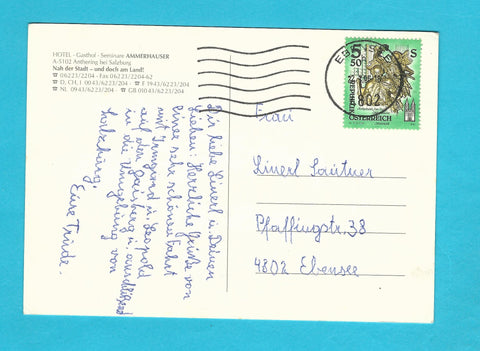 HOTEL - Gasthof - Seminare AMMERHAUSER
A-5102 Anthering bei Salzburg
Nah der Stadt – und doch am Land!
☎ 06223/2204 - Fax 06223/2204-62
☎ D, CH, I 0043/6223/204 ☎ F 1943/6223/204
☎ NL 0943/6223/204 ☎ GB 01043/6223/204
Ihr liebe Linerl u.
Lieben! Herzliche Grüße von
einer sehr schönen Fahrt
mit Irmgard u. Leopold
auf den Gaisberg u. anschließend
in die Umgebung von
Salzburg.
Eure Trude.
5
50
S
ÖSTERREICH
EBENSEE
4802
Frau
Linerl
Pfaffingstr. 38
4802 Ebensee